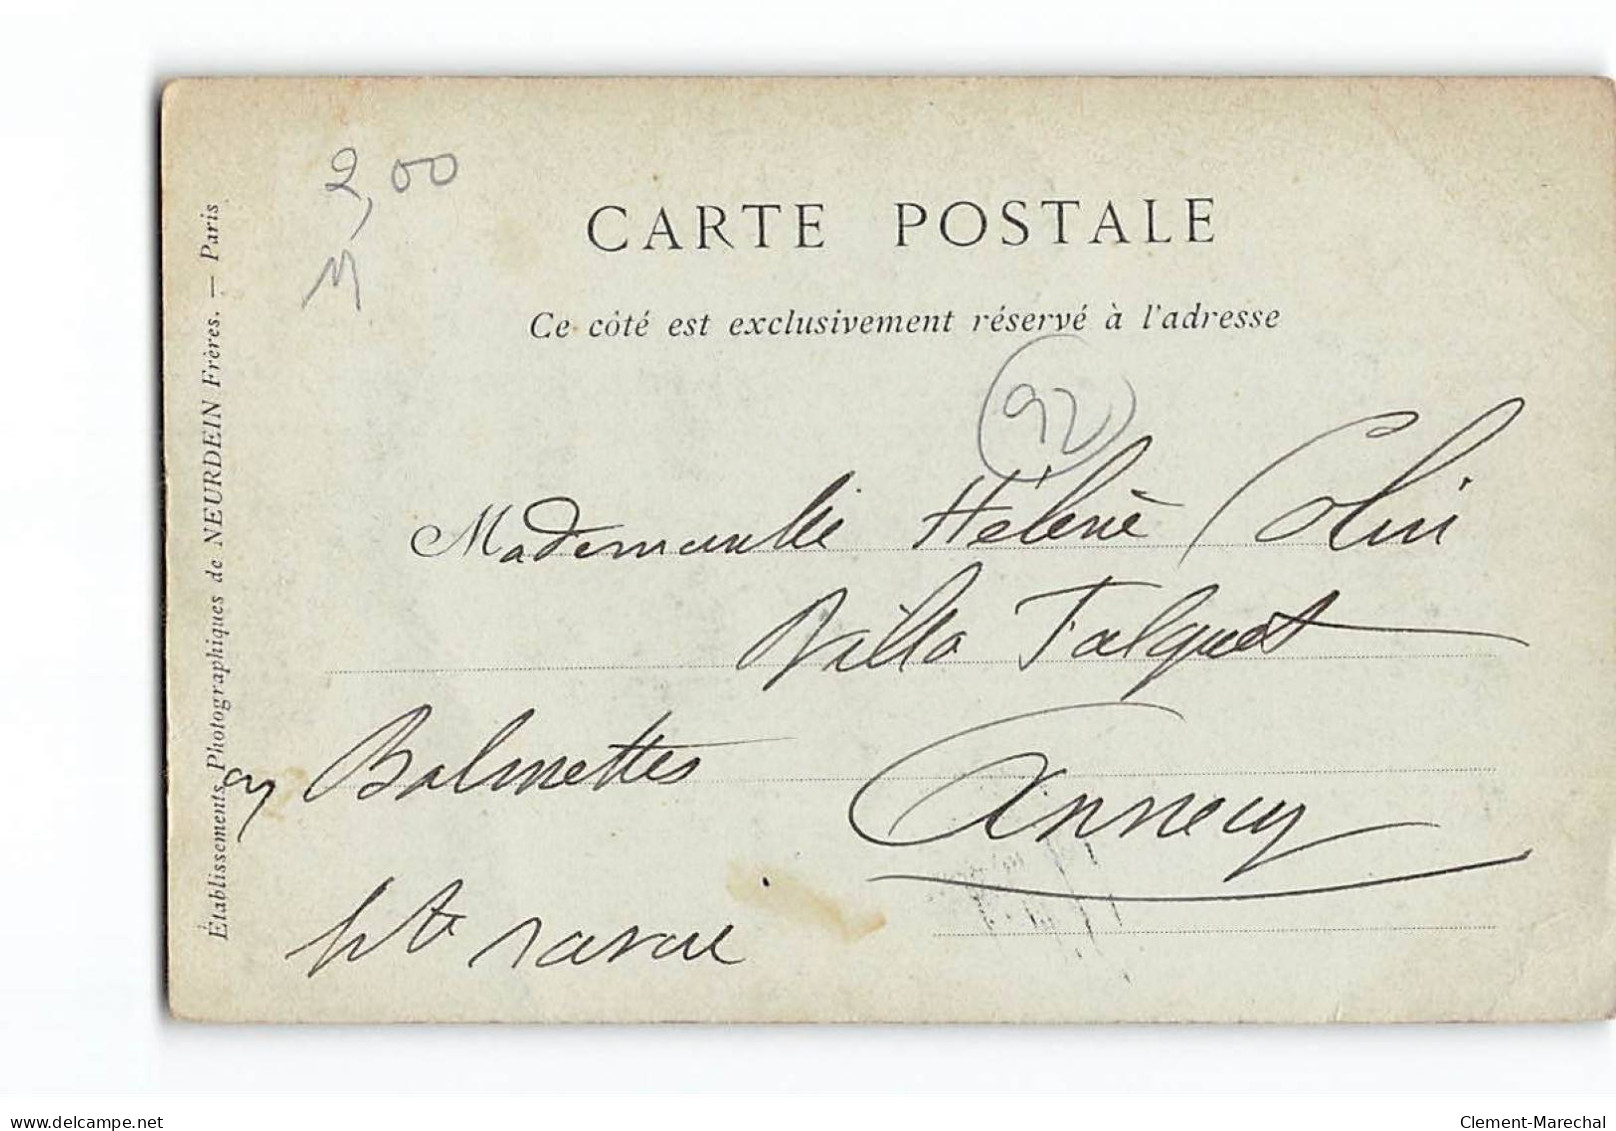 2,00
M
CARTE POSTALE
Ce côté est exclusivement réservé à l'adresse
92
Mademoiselle Hélène Colin
Villa Falquet
Balmettes
Annecy
hte savoie
Établissements Photographiques de NEURDEIN Frères. — Paris
delcampe.net
Clement-Marechal